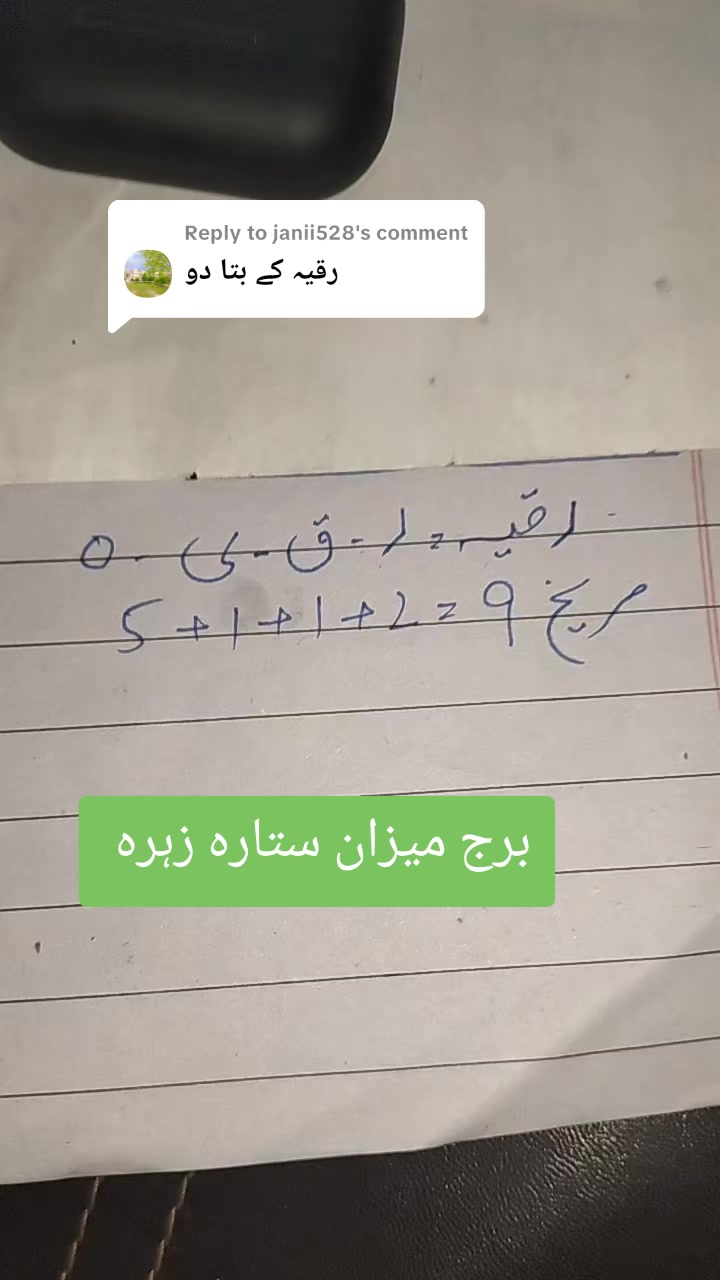 Reply to janii528's comment
رقیہ کے بتا دو
رقیہ = ر - ق - ی - ہ
مریخ 9 = 2 + 1 + 1 + 5
برج میزان ستارہ زہرہ